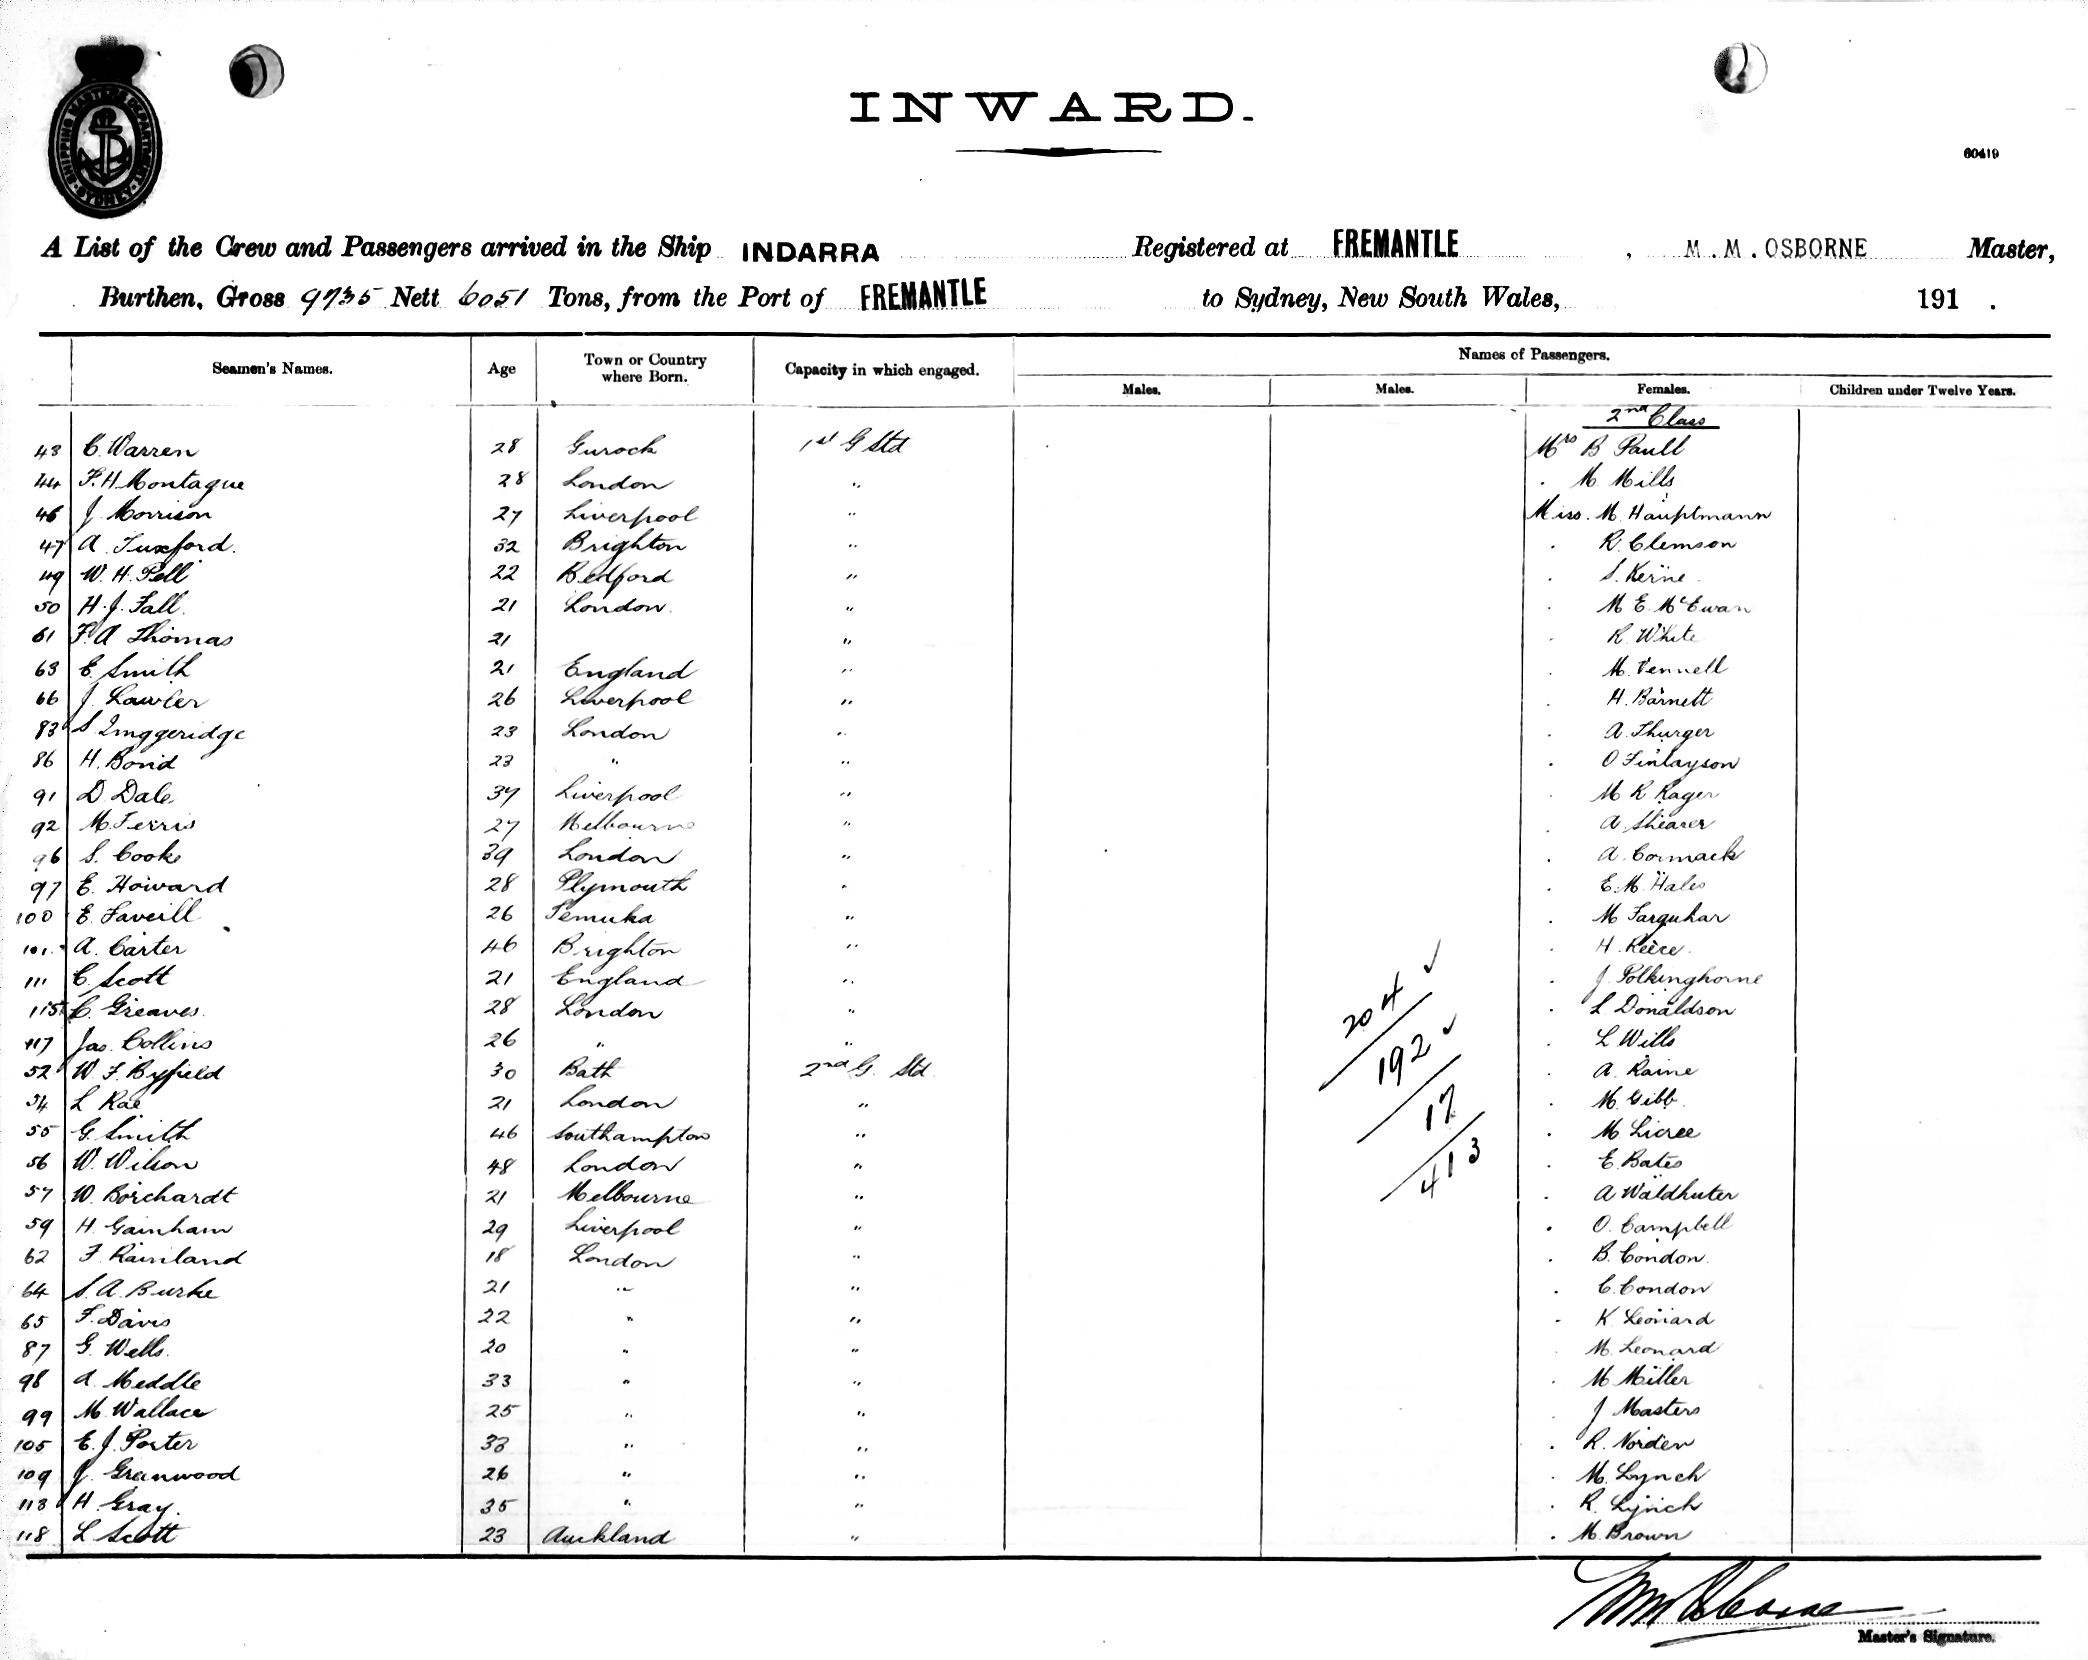 SHIPPING MASTER'S DEPARTMENT SYDNEY
INWARD.
60419
A List of the Crew and Passengers arrived in the Ship INDARRA Registered at FREMANTLE , M.M. OSBORNE Master,
Burthen, Gross 9735 Nett 6051 Tons, from the Port of FREMANTLE to Sydney, New South Wales, 191 .
Seamen's Names. Age Town or Country where Born. Capacity in which engaged. Names of Passengers.
Males. Males. Females. Children under Twelve Years.
2nd Class
43 C. Warren 28 Gurock 1st G Std Mrs B Paull
44 F. H Montague 28 London " " M Mills
46 J Morrison 27 Liverpool " Miss. M. Hauptmann
47 A. Tuxford. 32 Brighton " " R. Clemson
49 W. H. Pell 22 Bedford " " S. Kerne
50 H. J. Fall. 21 London. " " M E. McEwan
61 F. A Thomas 21 " " R. White
63 E. Smith 21 England " " M. Vennell
66 J. Lawler 26 Liverpool " " H. Barnett
83 S 23 London " " A. Thurger
86 H. Bond 23 " " " O Finlayson
91 D Dale 37 Liverpool " " M R Rager
92 M. Ferris 27 Melbourne " " A. Shearer
96 S. Cooke 39 London " " A. Cormack
97 E. Howard 28 Plymouth " " E. M. Hales
100 E. Faveill 26 Temuka " " M Farquhar
101 A. Carter 46 Brighton " " H. Reece.
111 C. Scott 21 England " " J Polkinghorne
115 C. Greaves. 28 London " " L Donaldson
117 Jas. Collins 26 " " " L Wills
52 W. F. Byfield 30 Bath 2nd G. Std " A. Raine
54 L Rae 21 London " " M. Gibb.
55 G. Smith 46 Southampton " " M.
56 W. Wilson 48 London " " E. Bates
57 W. Borchardt 21 Melbourne " " A Waldhuter
59 H. Gainham 29 Liverpool " " O. Campbell
62 F. Rainland 18 London " " B. Condon.
64 S. A. Burke 21 " " " C. Condon
65 F. Davis 22 " " " K. Leonard
87 G. Wells. 20 " " " M. Leonard
98 A. Meddle 33 " " " M Miller
99 M. Wallace 25 " " " J Masters
105 E. J. Porter 33 " " " R. Norden
109 J. Greenwood 26 " " " M. Lynch
113 H. Gray. 35 " " " R. Lynch
118 L Scott 23 Auckland " " M. Brown
204 ✓
192 ✓
17
413
Master's Signature.